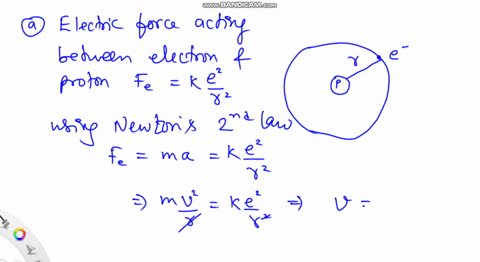 WWW.BANDICAM.COM
(a) Electric force acting
between electron &
proton Fe = k e²/r²
e⁻
r
P
using Newton's 2nd law
Fe = ma = k e²/r²
⇒ m v²/r = k e²/r² ⇒ v =